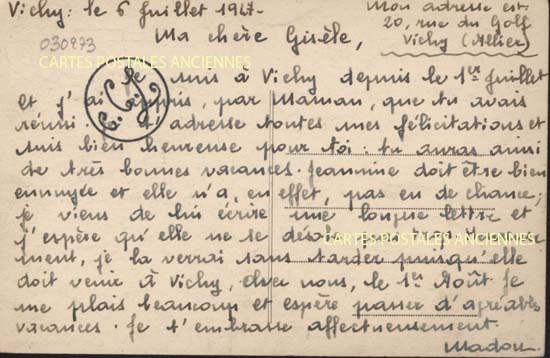 Vichy. le 6 Juillet 1947.
Mon adresse est:
20, rue du Golf
Vichy (Allier)
030973
Ma chère Gisèle,
CARTES POSTALES ANCIENNES
Je suis à Vichy depuis le 1er Juillet
et j'ai appris, par Maman, que tu avais
réussi. Je t'adresse toutes mes félicitations et
suis bien heureuse pour toi: tu auras ainsi
de très bonnes vacances. Jeannine doit être bien
ennuyée et elle n'a, en effet, pas eu de chance;
je viens de lui écrire une longue lettre et
j'espère qu'elle ne se
CARTES POSTALES ANCIENNES
ment, je la verrai sans tarder puisqu'elle
doit venir à Vichy, chez nous, le 1er Août. Je
me plais beaucoup et espère passer d'agréables
vacances. Je t'embrasse affectueusement
Madou.